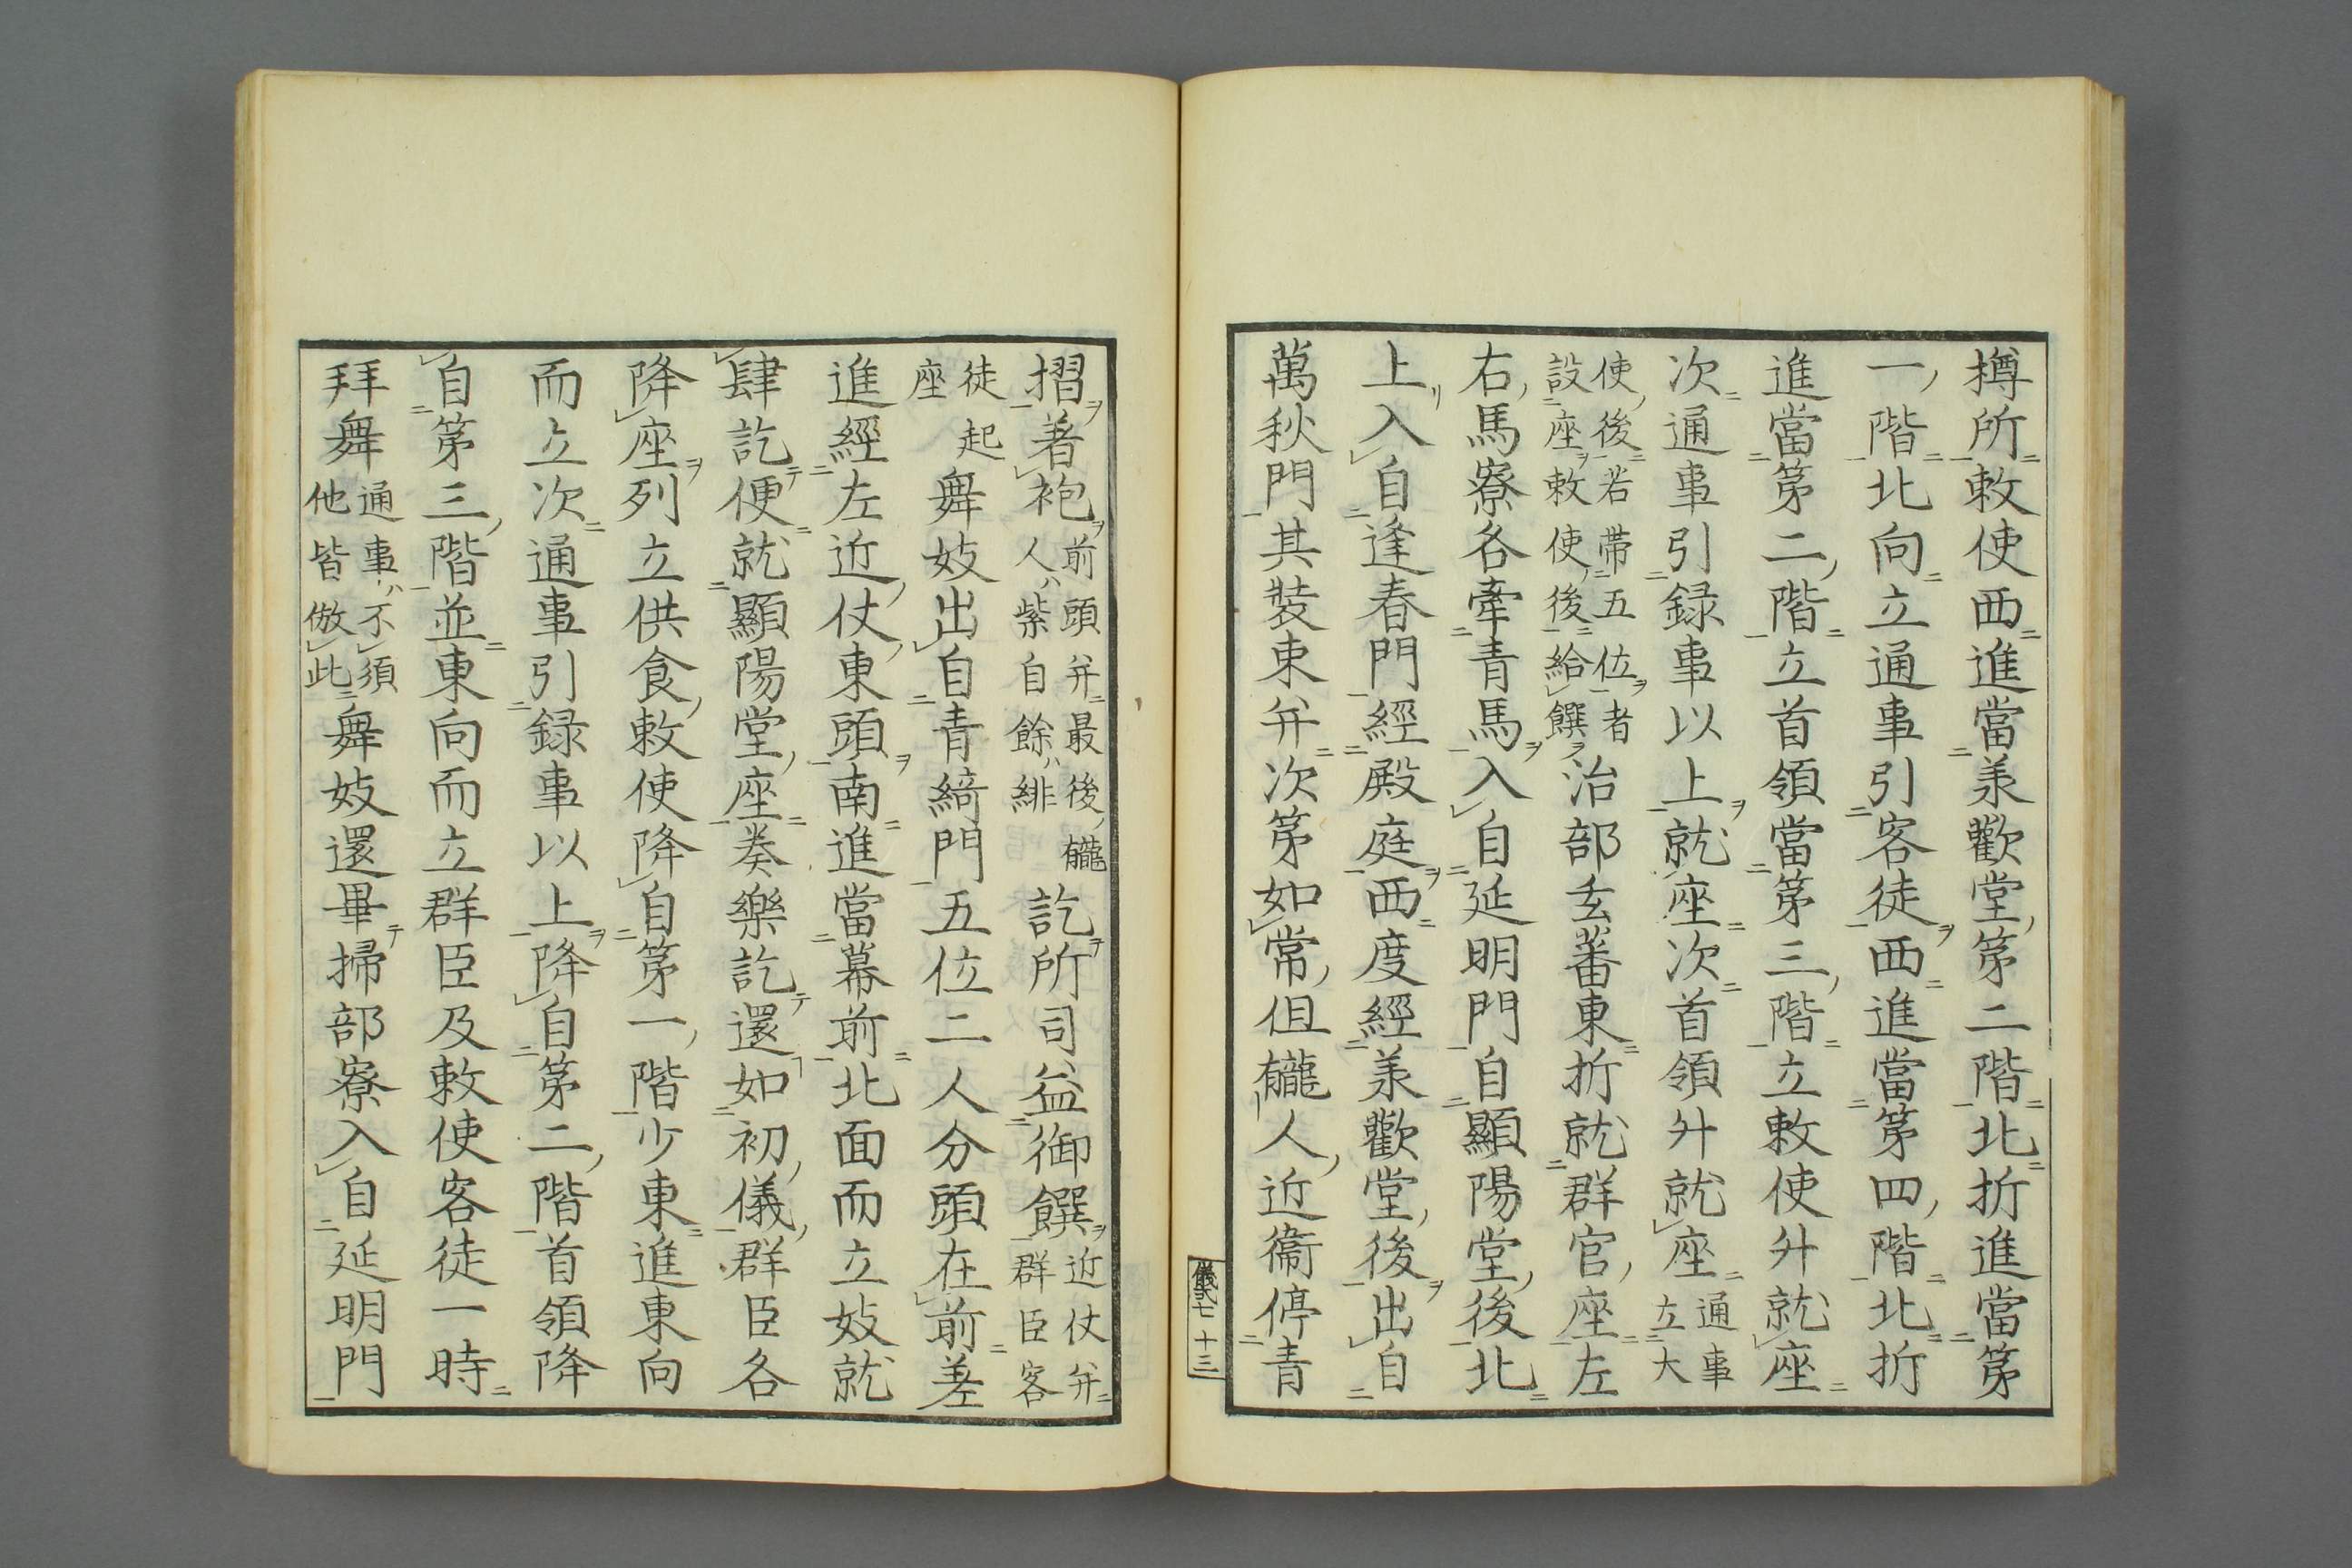 撙所敕使西進當羕歡堂第二階北折進當第
一階北向立通事引客徒西進當第四階北折
進當第二階立首領當第三階立敕使升就座
次通事引録事以上就座次首領升就座通事立大
使後若帶五位者設座敕使後給饌治部玄蕃東折就群官座左
右馬寮各牽青馬入自延明門自顯陽堂後北
上入自逢春門經殿庭西度經羕歡堂後出自
萬秋門其裝束并次第如常但龓人近衞停青
儀式七 十三
摺著袍前頭并最後龓人紫自餘緋訖所司益御饌近仗并群臣客
徒起座舞妓出自青綺門五位二人分頭在前差
進經左近仗東頭南進當幕前北面而立妓就
肆訖便就顯陽堂座奏樂訖還如初儀群臣各
降座列立供食敕使降自第一階少東進東向
而立次通事引録事以上降自第二階首領降
自第三階並東向而立群臣及敕使客徒一時
拜舞通事不須他皆倣此舞妓還畢掃部寮入自延明門